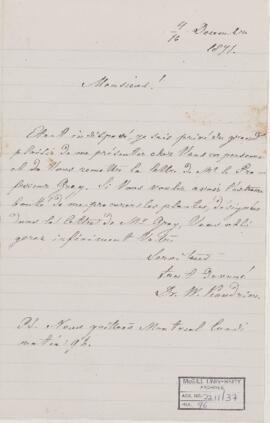 4/16 Decembre
1871.
Monsieur!
Etant indisposé, je suis privé du grand
plaisir de me présenter chez Vous en personne
et de Vous remettre la lettre de Mr. le Pro-
fesseur Gray. Si Vous voulez avoir l'extrême
bonté de me procurer les plantes désignées
dans la lettre de Mr. Gray, Vous obli-
gerez infiniment Votre
Serviteur
tout devoué
Dr. W.
PS. Nous quittons Montreal lundi
matin 9 h.
McGILL UNIVERSITY
ARCHIVES
ACC. NO. 2211/37
REF. 96